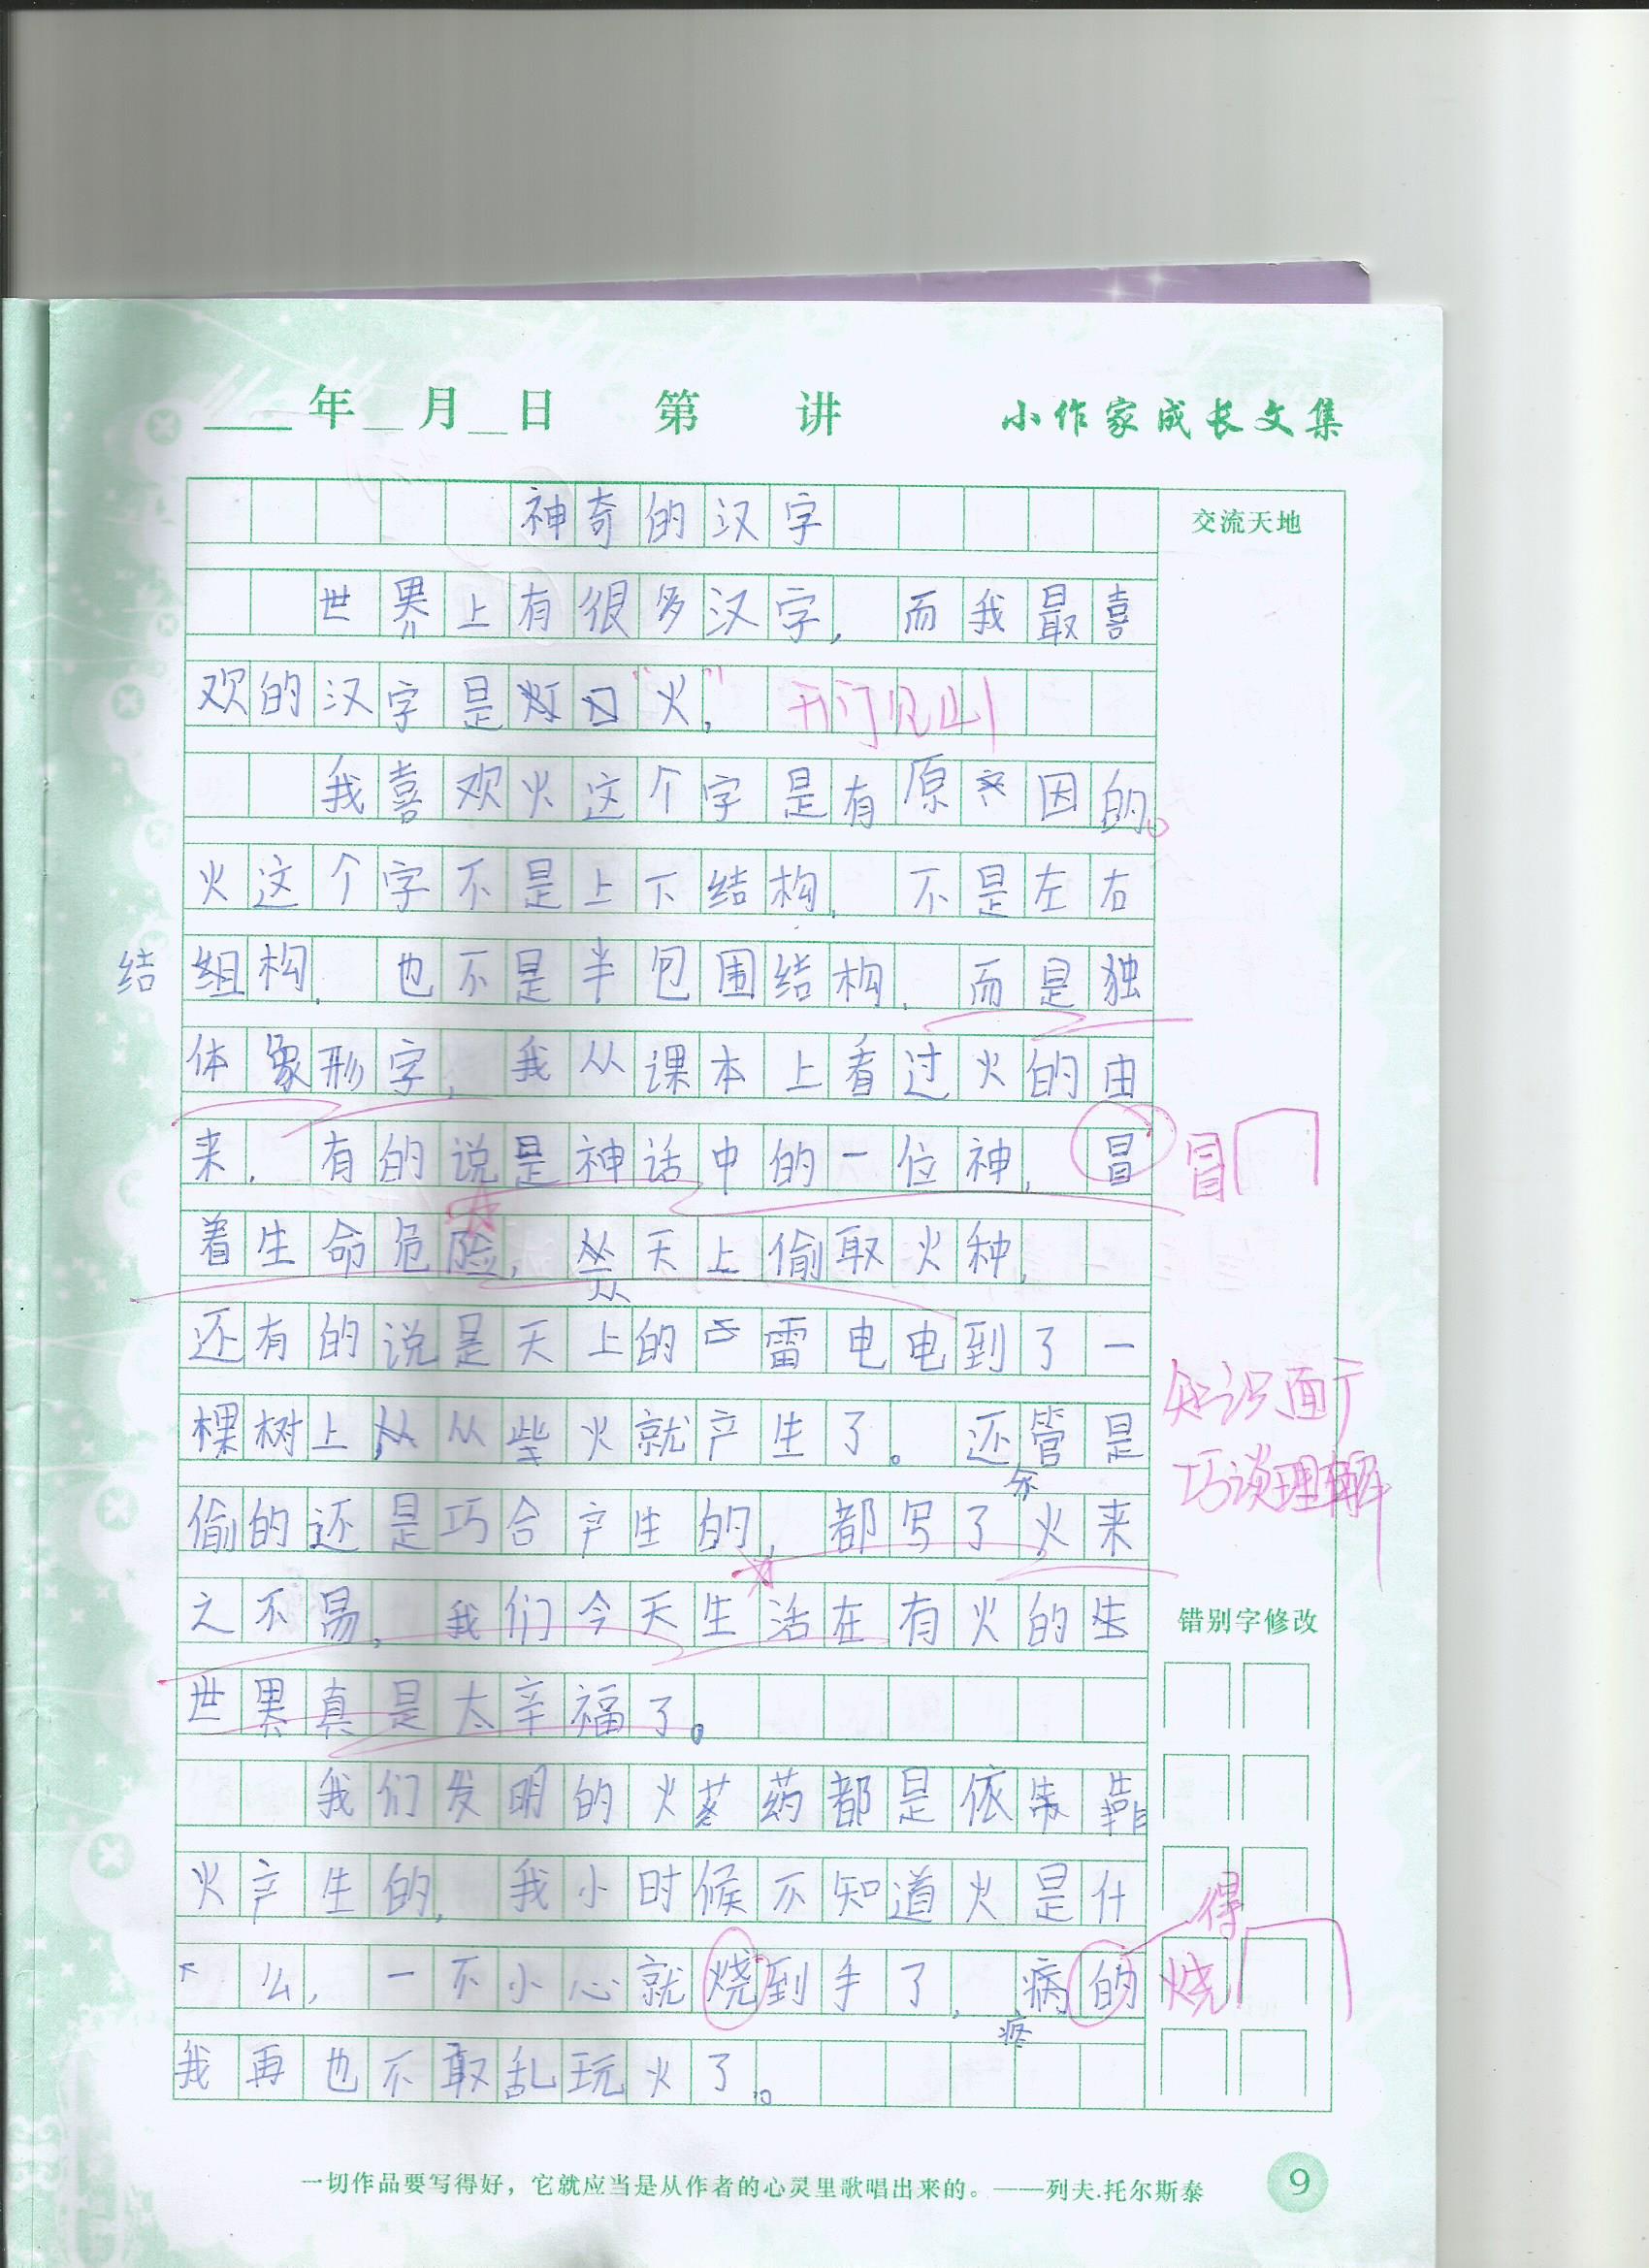 年 月 日 第 讲 小作家成长文集
神奇的汉字
交流天地
世界上有很多汉字，而我最喜
欢的汉字是“火”，
开门见山
我喜欢火这个字是有原因的。
火这个字不是上下结构，不是左右
结
组构，也不是半包围结构，而是独
体象形字，我从课本上看过火的由
来，有的说是神话中的一位神，冒
冒
着生命危险，从天上偷取火种，
还有的说是天上的雷电电到了一
棵树上，从从些火就产生了。还管是
知识面广
巧谈理解
偷的还是巧合产生的，都写了火来
之不易，我们今天生活在有火的
错别字修改
世界真是太辛福了。
我们发明的火药都是依靠
火产生的，我小时候不知道火是什
得
么，一不小心就烧到手了，疼的
烧
我再也不敢乱玩火了。
一切作品要写得好，它就应当是从作者的心灵里歌唱出来的。——列夫.托尔斯泰
9